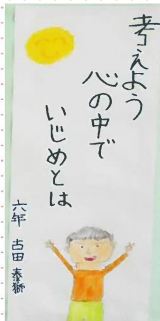 考えよう
心の中で
いじめとは
六年 古田 泰